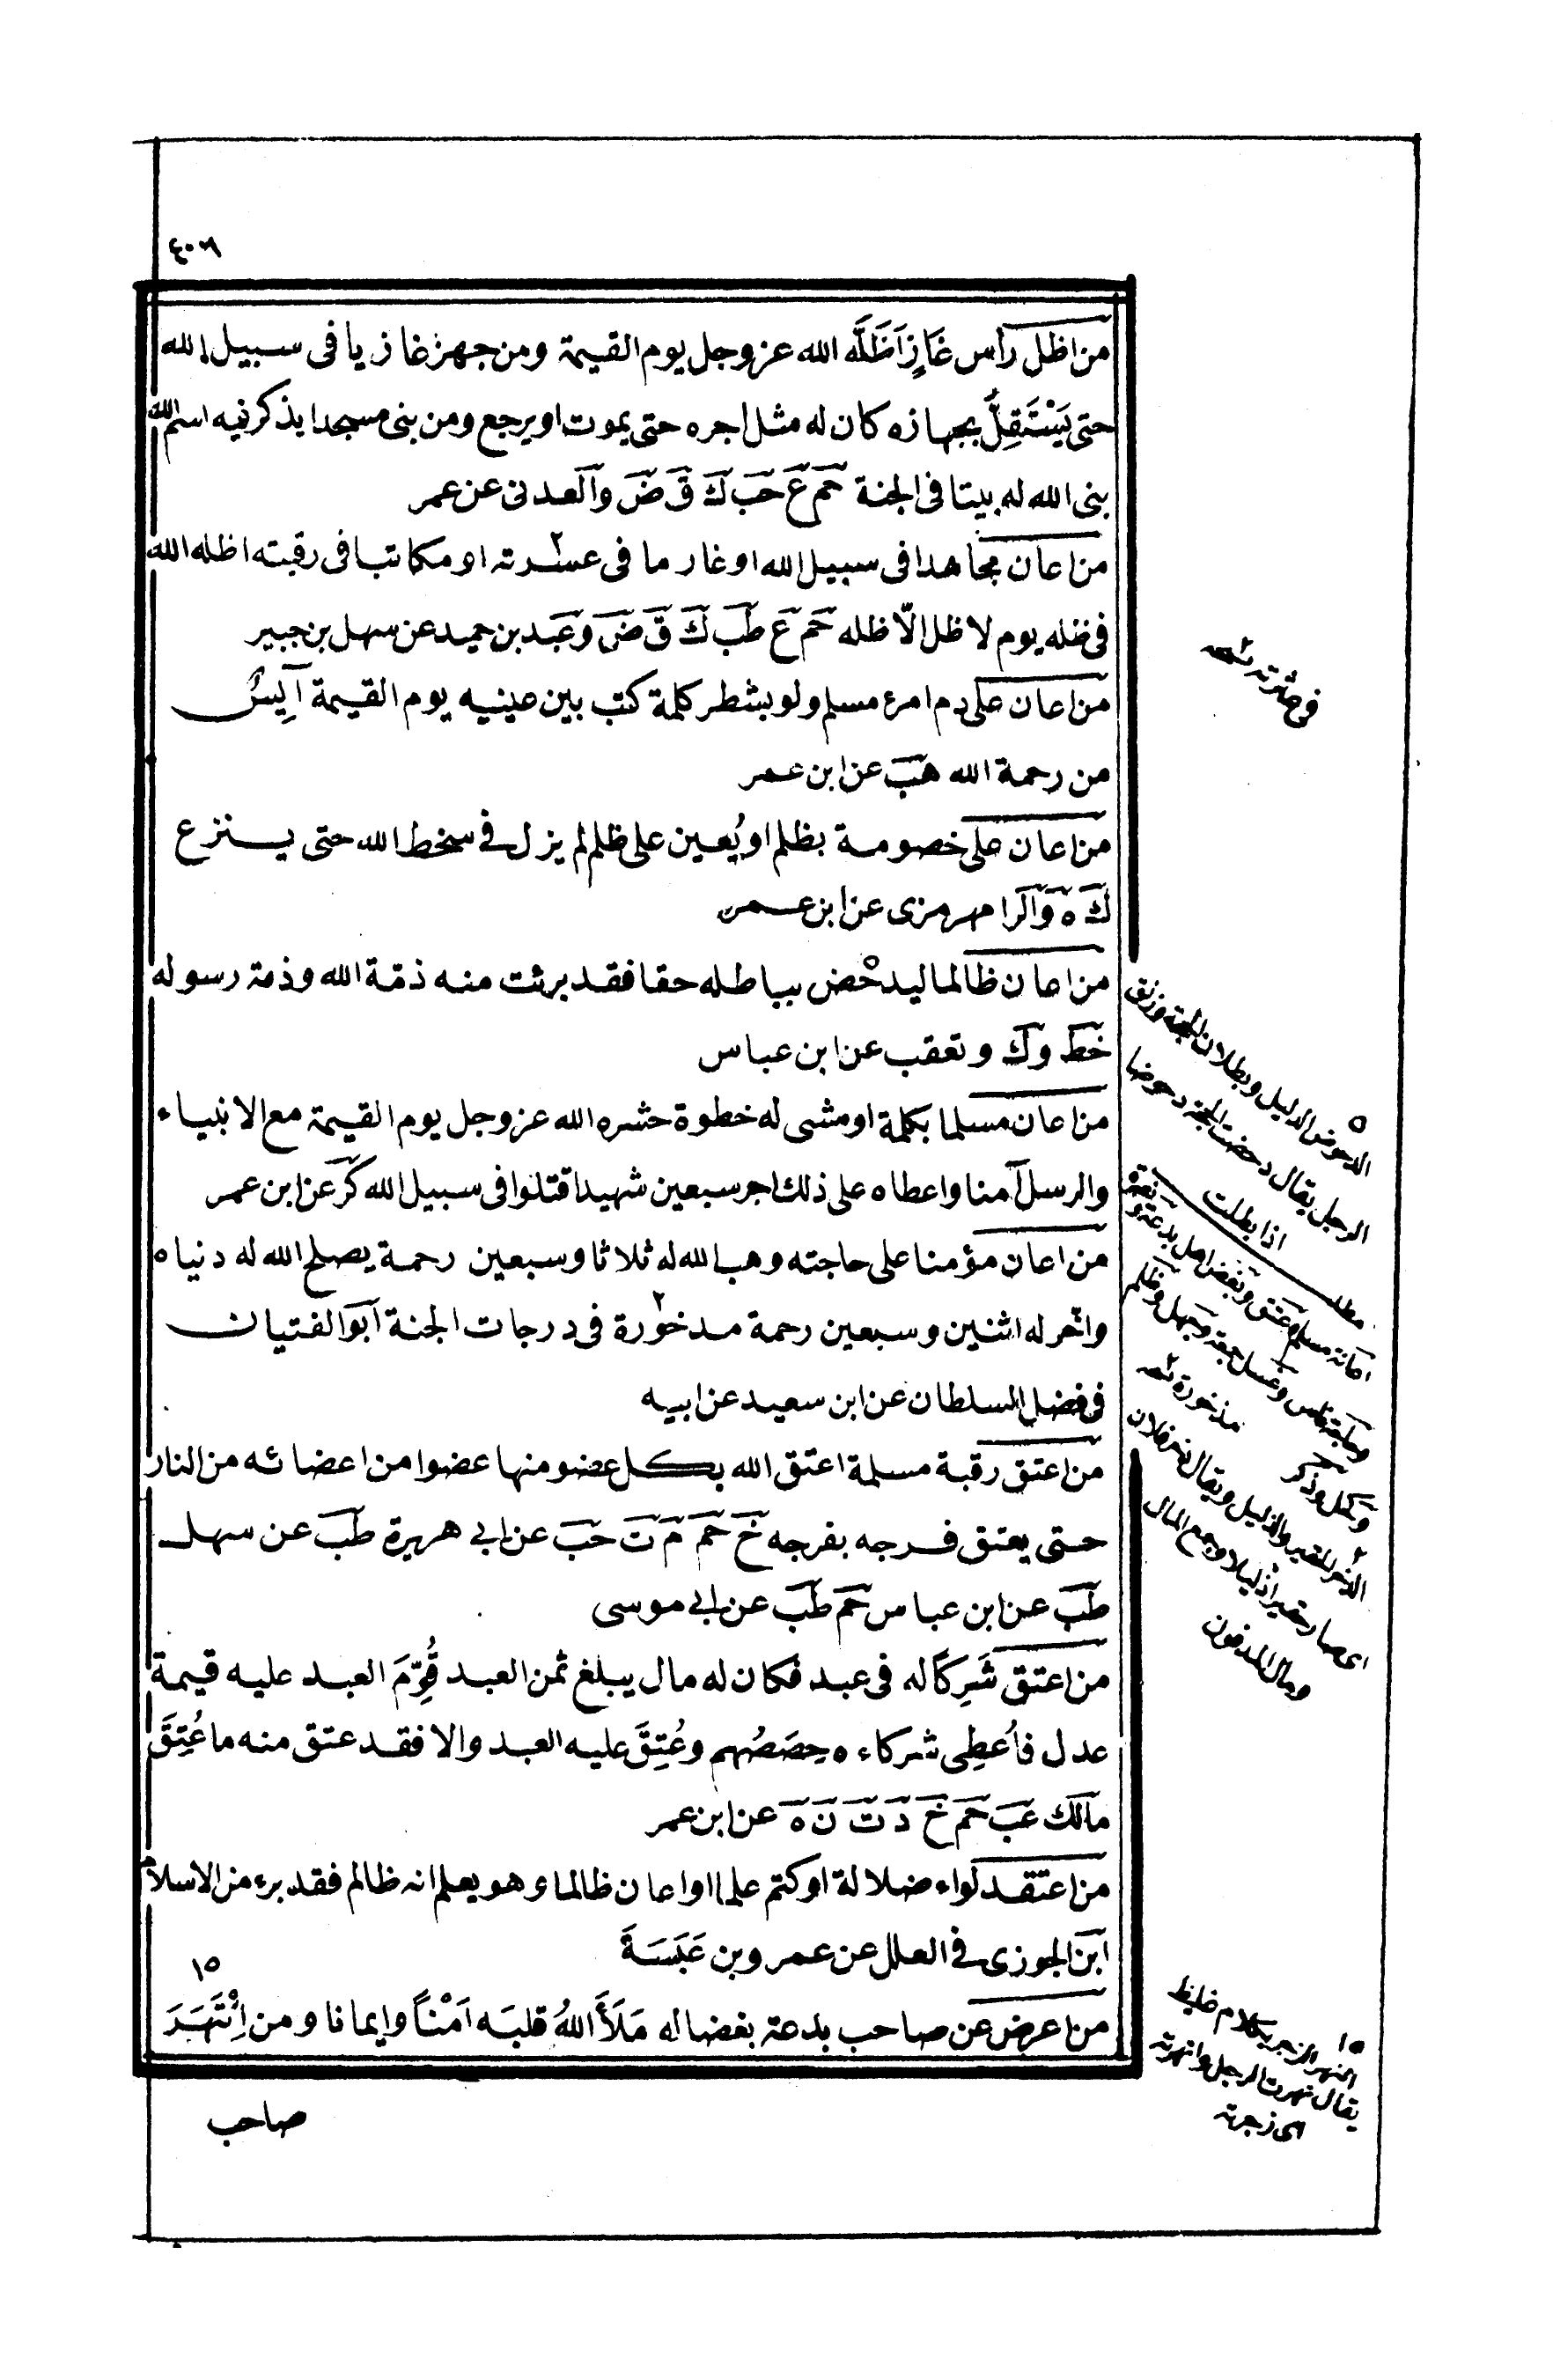 من اظل رأس غَازٍ اَظَلَّه الله عز وجل يوم القيمة ومن جهز غازيا فى سبيل الله
حتى يَسْتَقِلَّ بجهازه كان له مثل اجره حتى يموت او يرجع ومن بنى مسجدا يذكر فيه اسم الله
بنى الله له بيتا فى الجنة حم ع حب ك ق ض والعدنى عن عمر
من اعان مجاهدا فى سبيل الله او غارما فى عسرته او مكاتبا فى رقبته اظله الله
فى ظله يوم لا ظل الّا ظله حم ع طب ك ق ض وعبد بن حميد عن سهل بن جبير
من اعان على دم امرء مسلم ولو بشطر كلمة كتب بين عينيه يوم القيمة آيِسٌ
من رحمة الله هب عن ابن عمر
من اعان على خصومة بظلم او يُعين على ظلم لم يزل فى سخط الله حتى ينزع
ك ه والرامهرمزى عن ابن عمر
من اعان ظالما ليدحض بباطله حقا فقد برئت منه ذمّة الله وذمة رسوله
خط وك وتعقب عن ابن عباس
من اعان مسلما بكلمة او مشى له خطوة حشره الله عز وجل يوم القيمة مع الانبياء
والرسل آمنا واعطاه على ذلك اجر سبعين شهيدا قتلوا فى سبيل الله كر عن ابن عمر
من اعان مؤمنا على حاجته وهب الله له ثلاثا وسبعين رحمة يصلح الله له دنياه
واخّر له اثنين وسبعين رحمة مدخورة فى درجات الجنة ابو الفتيان
فى فضل السلطان عن ابن سعيد عن ابيه
من اعتق رقبة مسلمة اعتق الله بكل عضو منها عضوا من اعضائه من النار
حتى يعتق فرجه بفرجه خ حم م ت حب عن ابى هريرة طب عن سهل
طب عن ابن عباس حم طب عن ابى موسى
من اعتق شَرِكًا له فى عبد فكان له مال يبلغ ثمن العبد قُوِّمَ العبد عليه قيمة
عدل فأُعطِى شركاءه حِصَصُهم وعُتِقَ عليه العبد والا فقد عتق منه ما عُتِقَ
مالك عب حم خ د ت ن ه عن ابن عمر
من اعتقد لواء ضلالة او كتم علما او اعان ظالما وهو يعلم انه ظالم فقد برء من الاسلام
ابن الجوزى فى العلل عن عمرو بن عَبَسَةَ
١٥
من اعرض عن صاحب بدعة بغضا له مَلَأَ اللهُ قلبَه اَمْنًا وايمانا ومن اِنْتَهَرَ
صاحب
٥
الدحوض الدليل وبطلان الحجة وزلق
الرجل يقال دحضت الحجة دحوضا
اذا بطلت
مطلب
مدخورة نسخه
اى صار حقيرا ذليلا وجمع المال
ومال المدفون
١٥
النهر الزجر بكلام غليظ
يقال نهرت الرجل وانهرته
اى زجرته